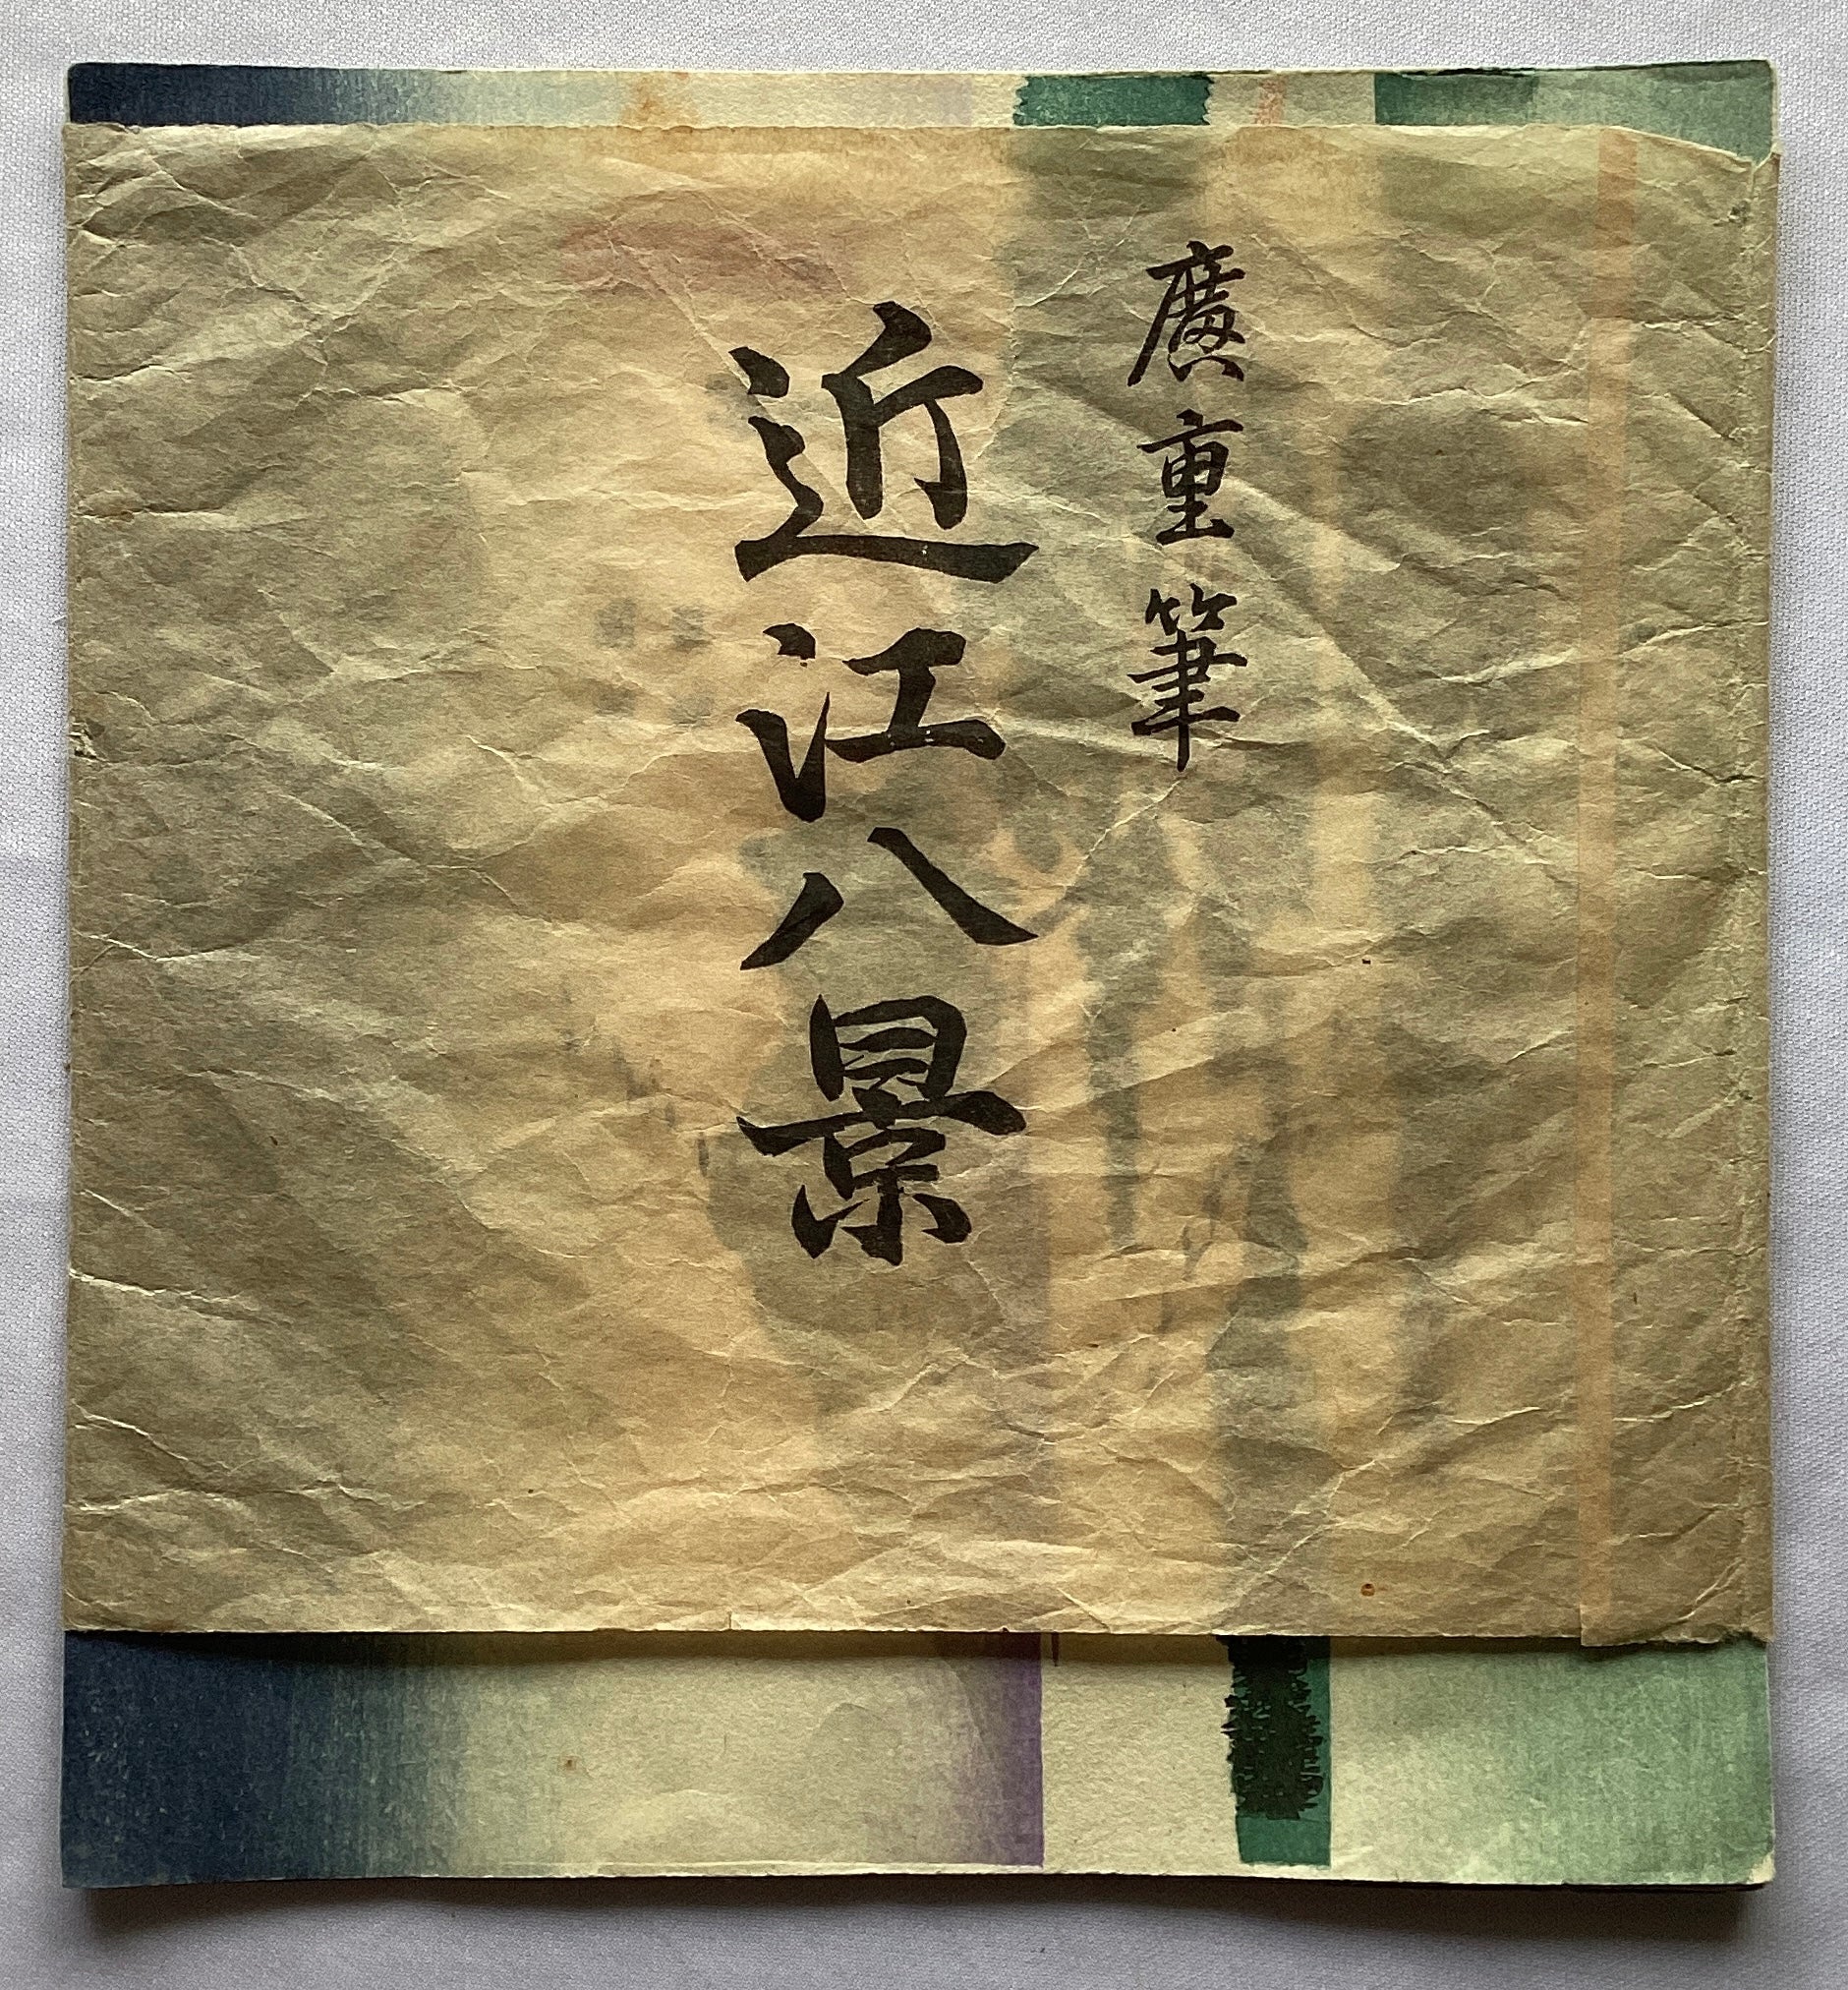 廣重筆
近江八景